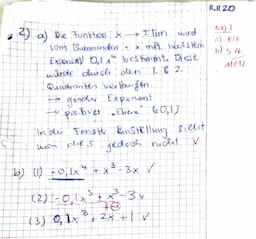 11.11.20
2) a) Die Funktion x → ± 1x^n wird
vom Summanden + x mit höchstem
Exponent 0,1x⁴ bestimmt. Diese
würde durch den 1. & 2.
Quadranten verlaufen.
→ grader Exponent
→ positiver (0,1)
In der Fenster Einstellung sieht
man dies jedoch nicht ✓
b) (1) -0,1x⁴ + x³ - 3x ✓
(2) -0,1x³ + x³ - 3x
(3) 0,1x³ + 2x + 1 ✓
a) 6/6
b) 5/6
11/12